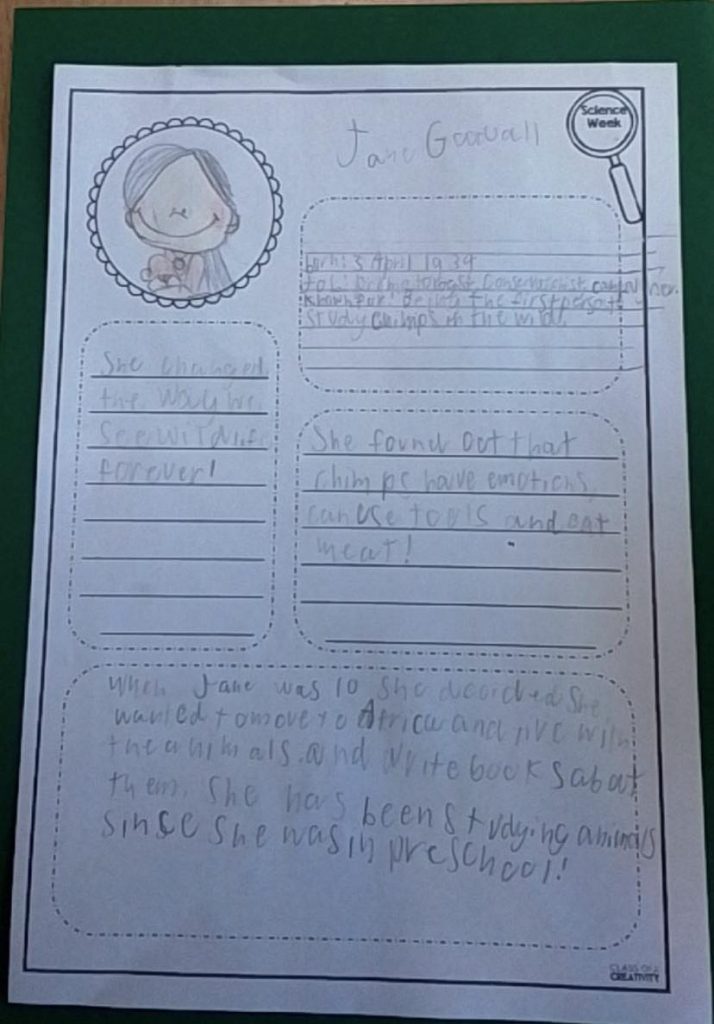 Science
Week
Jane Goodall
born: 3 April 1934
Job: Conservationist
Known for: Being the first person to
study chimps in the wild.
She changed
the way we
see wildlife
forever!
She found out that
chimps have emotions,
can use tools and eat
meat!
When Jane was 10 she decided she
wanted to move to Africa and live with
the animals. and write books about
them. She has been studying animals
since she was in preschool!
CLASS OF
CREATIVITY